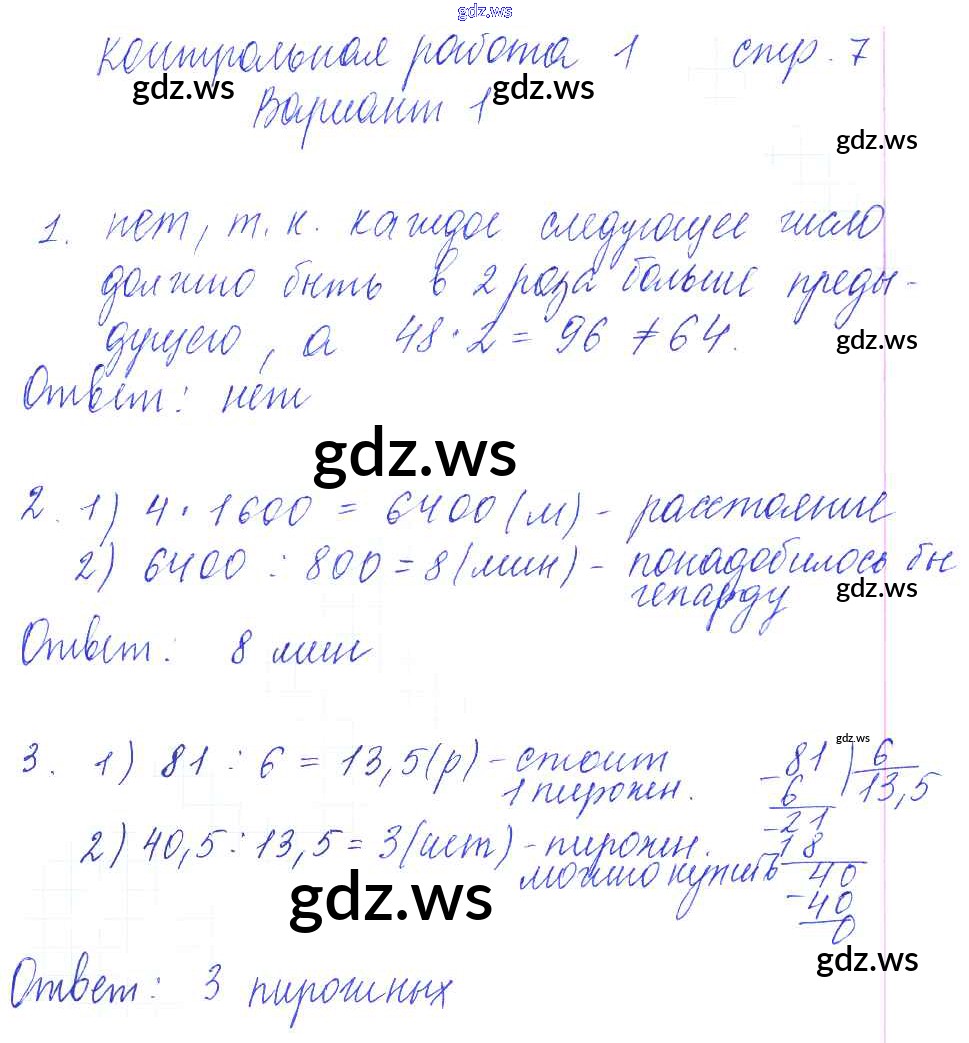 gdz.ws
Контрольная работа 1 стр. 7
gdz.ws gdz.ws
Вариант 1
gdz.ws
1. нет, т. к. каждое следующее число
должно быть в 2 раза больше преды-
дущего, а 48 · 2 = 96 ≠ 64.
gdz.ws
Ответ: нет
gdz.ws
2. 1) 4 · 1600 = 6400 (м) - расстояние
2) 6400 : 800 = 8 (мин) - понадобилось бы
гепарду
gdz.ws
Ответ: 8 мин
gdz.ws
3. 1) 81 : 6 = 13,5 (р) - стоит
1 пирожн.
2) 40,5 : 13,5 = 3 (шт) - пирожн.
можно купить
81 6
- 6 13,5
21
- 18
40
- 40
0
gdz.ws
gdz.ws
Ответ: 3 пирожных